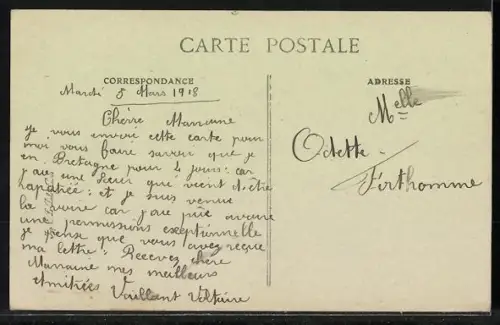 CARTE POSTALE
CORRESPONDANCE
ADRESSE
Mardi 5 Mars 1918
Chérre Marraine
Je vous envoie cette carte pour
moi vous faire savoir que je
en Bretagne pour 4 jours: car
j'ai une Sœur qui vient d'être
et je suis venue
la voire car j'ai pûe avoire
une permissions exeptionnelle
je pense que vous avez reçue
ma lettre: Recevez chère
Marraine mes meilleurs
Amitiées Vaillant Voltaire
Melle
Odette
Firthomme